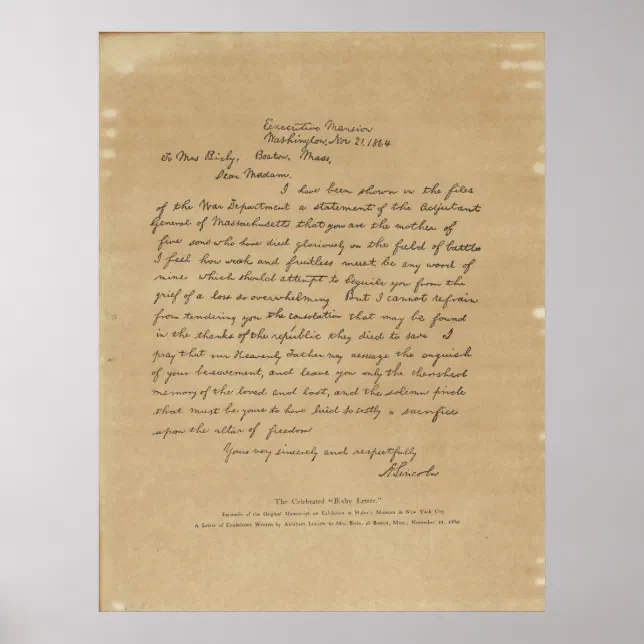 Executive Mansion
Washington, Nov 21, 1864
To Mrs Bixby, Boston, Mass,
Dear Madam.
I have been shown in the files
of the War Department a statement of the Adjutant
General of Massachusetts that you are the mother of
five sons who have died gloriously on the field of battle
I feel how weak and fruitless must be any word of
mine which should attempt to beguile you from the
grief of a loss so overwhelming But I cannot refrain
from tendering you the consolation that may be found
in the thanks of the republic they died to save I
pray that our Heavenly Father may assuage the anguish
of your bereavement, and leave you only the cherished
memory of the loved and lost, and the solemn pride
that must be yours to have laid so costly a sacrifice
upon the altar of freedom
Yours very sincerely and respectfully
A. Lincoln
The Celebrated "Bixby Letter."
Facsimile of the Original Manuscript on Exhibition at Huber's Museum in New York City
A Letter of Condolence Written by Abraham Lincoln to Mrs. Bixby, of Boston, Mass., November 21, 1864